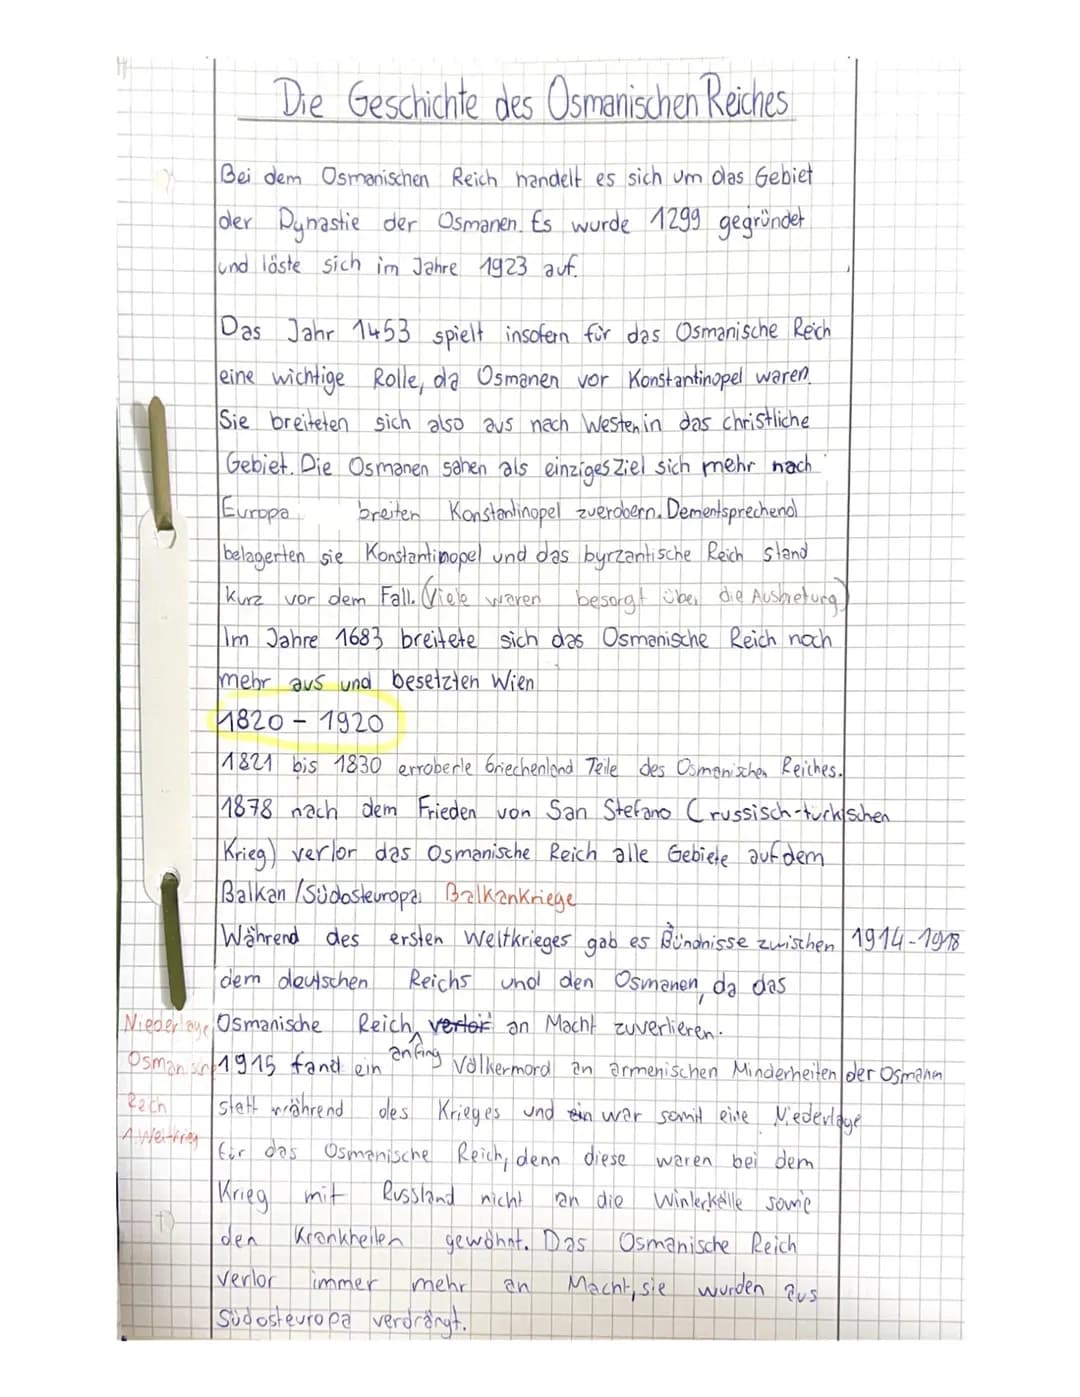 Die Geschichte des Osmanischen Reiches
Bei dem Osmanischen Reich handelt es sich um das Gebiet
der Dynastie der Osmanen. Es wurde 1299 gegründet
und löste sich im Jahre 1923 auf.
Das Jahr 1453 spielt insofern für das Osmanische Reich
eine wichtige Rolle, da Osmanen vor Konstantinopel waren.
Sie breiteten sich also aus nach Westen in das christliche
Gebiet. Die Osmanen sahen als einziges Ziel sich mehr nach
Europa breiten Konstantinopel zuerobern. Dementsprechend
belagerten sie Konstantinopel und das byrzantische Reich stand
kurz vor dem Fall. (Viele waren besorgt über die Ausbreitung)
Im Jahre 1683 breitete sich das Osmanische Reich noch
mehr aus und besetzten Wien
1820 - 1920
1821 bis 1830 erroberte Griechenland Teile des Osmanischen Reiches.
1878 nach dem Frieden von San Stefano (russisch-türkischen
Krieg) verlor das Osmanische Reich alle Gebiete auf dem
Balkan / Südosteuropa. Balkankriege
Während des ersten Weltkrieges gab es Bündnisse zwischen 1914-1918
dem deutschen Reichs und den Osmanen, da das
Niederlage Osmanische Reich, verlor anfing an Macht zuverlieren.
Osmanisch 1915 fand ein Völkermord an armenischen Minderheiten der Osmann
Reich statt während des Krieges und ein war somit eine Niederlage
1. Weltkrieg für das Osmanische Reich, denn diese waren bei dem
Krieg mit Russland nicht an die Winterkälte sowie
den Krankheiten gewöhnt. Das Osmanische Reich
verlor immer mehr an Macht, sie wurden aus
Südosteuropa verdrängt.